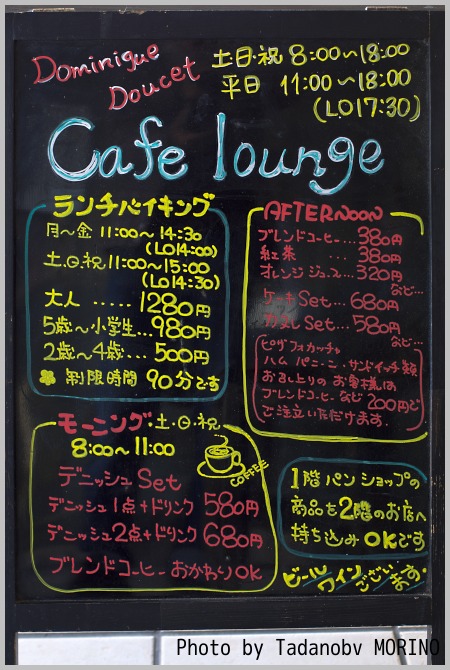 Dominique
Doucet
土・日・祝 8:00〜18:00
平日 11:00〜18:00
(LO17:30)
Cafe lounge
ランチバイキング
月〜金 11:00〜14:30
(LO14:00)
土.日.祝 11:00〜15:00
(LO14:30)
大人 ..... 1280円
5歳〜小学生... 980円
2歳〜4歳.... 500円
制限時間 90分です
AFTERNOON
ブレンドコーヒー... 380円
紅茶 ... 380円
オレンジジュース... 320円
など...
ケーキSet... 680円
Set... 580円
など...
ピザ フォカッチャ
ハム パニーニ・サンドイッチ類
お召し上りの お客様は
ブレンドコーヒー など 200円で
ご注文いただけます.
モーニング・土・日・祝
8:00〜11:00
COFFEE
デニッシュ Set
デニッシュ1点+ドリンク 580円
デニッシュ2点+ドリンク 680円
ブレンドコーヒー おかわりOK
1階 パン ショップの
商品を2階のお店へ
持ち込み OKです
ビール ワイン ございます.
Photo by Tadanobv MORINO